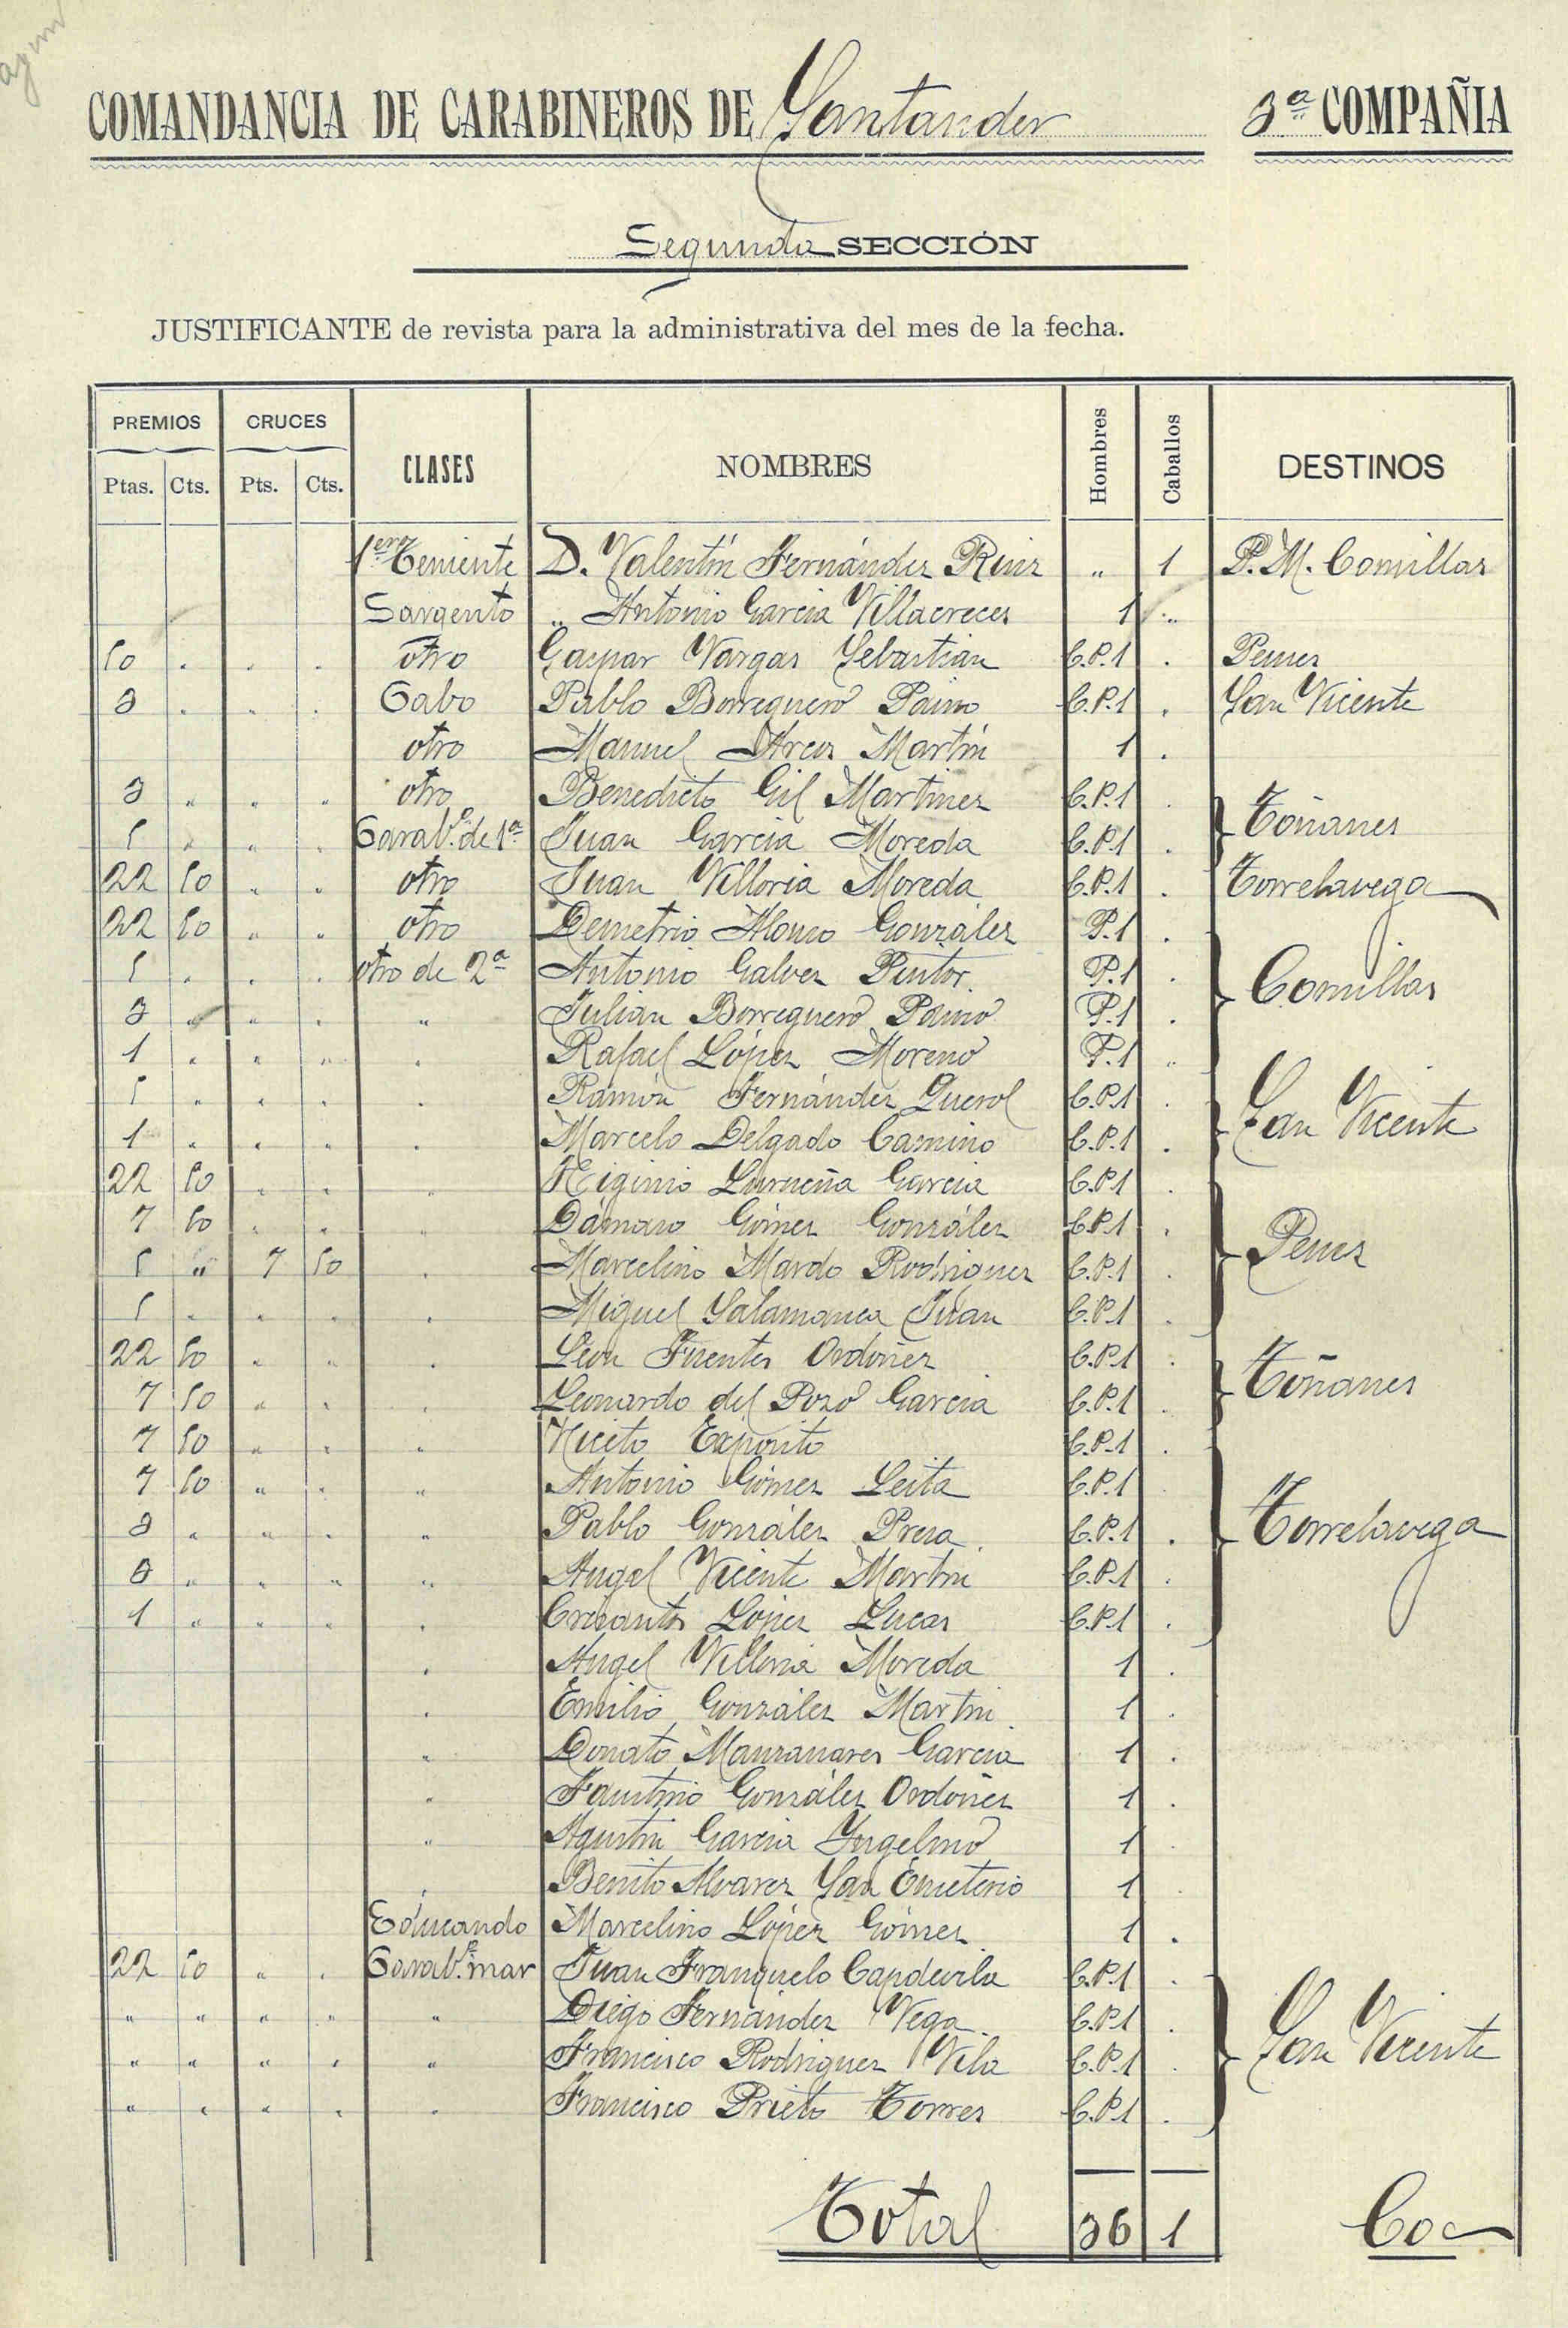 COMANDANCIA DE CARABINEROS DE Santander 3ª COMPAÑIA
Segunda SECCIÓN
JUSTIFICANTE de revista para la administrativa del mes de la fecha.
PREMIOS CRUCES CLASES NOMBRES Hombres Caballos DESTINOS
Ptas. Cts. Pts. Cts.
1er Teniente D. Valentín Fernández Ruiz " 1 P. M. Comillas
Sargento " Antonio Garcia Villacreces 1 "
50 . . . otro Gaspar Vargas Sebastián C.P. 1 . Pemes
3 . . . Cabo Pablo Borreguero Paino C.P. 1 . San Vicente
otro Manuel Arcos Martín 1 .
3 " " " otro Benedicto Gil Martinez C.P. 1 .
5 " " . Carab.º de 1ª Juan Garcia Moreda C.P. 1 . } Toñanes
22 50 " " otro Juan Villoria Moreda C.P. 1 . Torrelavega
22 50 " " otro Demetrio Alonso González P. 1 .
5 . . . otro de 2ª Antonio Galvez Pintor P. 1 . } Comillas
3 " " . " Julián Borreguero Paino P. 1 .
1 . " " . Rafael López Moreno P. 1 "
5 " " " . Ramón Fernández Querol C.P. 1 .
1 " . . . Marcelo Delgado Camino C.P. 1 . } San Vicente
22 50 . . . Higinio Lurueña Garcia C.P. 1 .
7 50 . . . Dámaso Gómez González C.P. 1 .
5 " 7 50 . Marcelino Mardo Rodriguez C.P. 1 . } Pemes
5 . . . . Miguel Salamanca Juan C.P. 1 .
22 50 " " . León Fuentes Ordoñez C.P. 1 .
7 50 " . . Leonardo del Pozo Garcia C.P. 1 . } Toñanes
7 50 " . " Niceto Expósito C.P. 1 .
7 50 " . " Antonio Gómez Leita C.P. 1 .
3 " " . " Pablo González Presa C.P. 1 . } Torrelavega
3 " " " " Angel Vicente Martin C.P. 1 .
1 " " " . Crisantos López Lucas C.P. 1 .
. Angel Villoria Moreda 1 .
. Emilio González Martin 1 .
" Donato Manzanares Garcia 1 .
" Faustino González Ordoñez 1 .
" Agustin Garcia 1 .
. Benito Alvarez San Emeterio 1 .
Educando Marcelino López Gómez 1 .
22 50 " . Carab.º mar Juan Franquelo Capdevila C.P. 1 .
" " " " " Diego Fernández Vega C.P. 1 .
" " " " " Francisco Rodriguez Vila C.P. 1 . } San Vicente
" " " . . Francisco Prieto Torres C.P. 1 .
Total 36 1